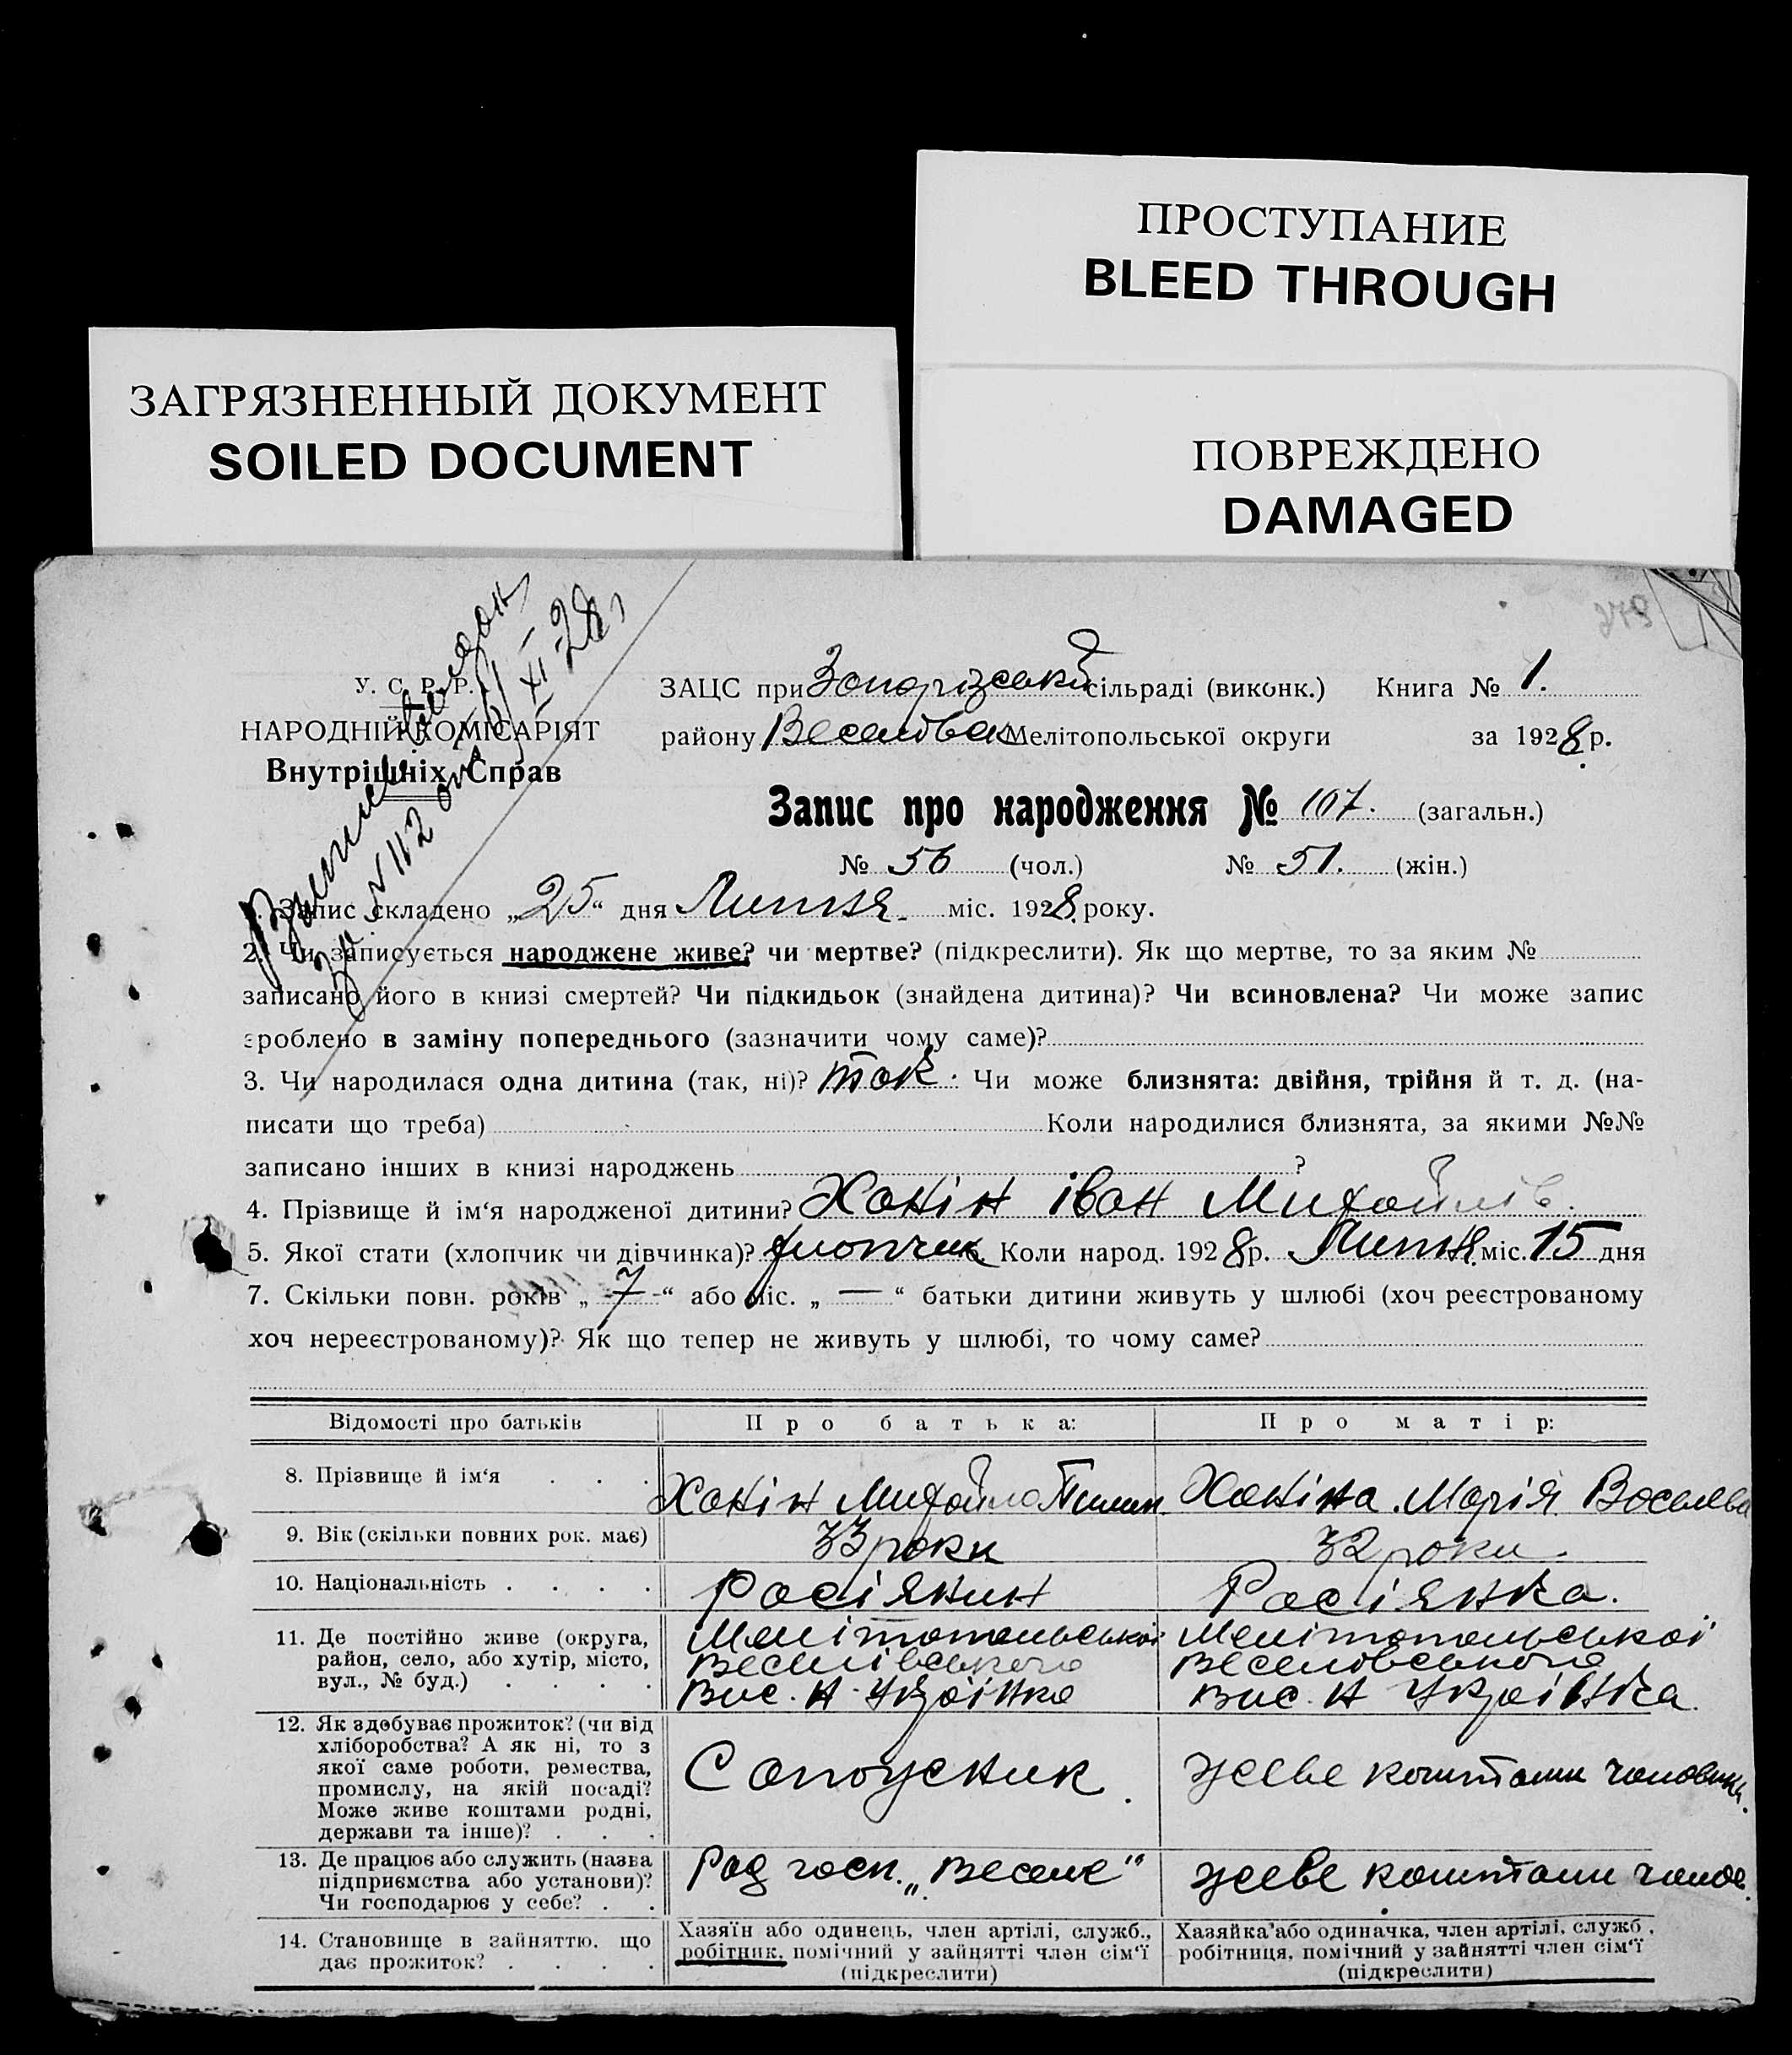 ПРОСТУПАНИЕ
BLEED THROUGH
ЗАГРЯЗНЕННЫЙ ДОКУМЕНТ
SOILED DOCUMENT
ПОВРЕЖДЕНО
DAMAGED
У. С. Р. Р.
НАРОДНІЙ КОМІСАРІЯТ
Внутрішніх Справ
за №112 від
XI 28
ЗАЦС при сільраді (виконк.) Книга № 1.
району Мелітопольської округи за 1928 р.
Запис про народження № 107. (загальн.)
№ 56 (чол.) № 51. (жін.)
1. Запис складено „25“ дня Липня міс. 1928 року.
2. Чи записується народжене живе? чи мертве? (підкреслити). Як що мертве, то за яким №
записано його в книзі смертей? Чи підкидьок (знайдена дитина)? Чи всиновлена? Чи може запис
зроблено в заміну попереднього (зазначити чому саме)?
3. Чи народилася одна дитина (так, ні)? так. Чи може близнята: двійня, трійня й т. д. (на-
писати що треба) Коли народилися близнята, за якими №№
записано інших в книзі народжень ?
4. Прізвище й ім‘я народженої дитини? Ханін Іван Михайлів.
5. Якої стати (хлопчик чи дівчинка)? хлопчик Коли народ. 1928 р. Липня міс. 15 дня
7. Скільки повн. років „ 7 “ або міс. „ — “ батьки дитини живуть у шлюбі (хоч реєстрованому
хоч нереєстрованому)? Як що тепер не живуть у шлюбі, то чому саме?
Відомості про батьків Про батька: Про матір:
8. Прізвище й ім‘я . . . Ханін Михайло Ханіна Марія
9. Вік (скільки повних рок. має) 33 роки 32 роки.
10. Національність . . . . Росіянин Росіянка.
11. Де постійно живе (округа, район, село, або хутір, місто, вул., № буд.) . . . .
Мелітопольської Мелітопольської
Веселівського Веселовського
Вис. Н-Українка Вис. Н Українка.
12. Як здобуває прожиток? (чи від хліборобства? А як ні, то з
якої саме роботи, ремества,
промислу, на якій посаді?
Може живе коштами родні,
держави та інше)? . . .
живе коштами чоловіка.
13. Де працює або служить (назва
підприємства або установи)?
Чи господарює у себе? . .
Рад госп. „Веселе“ живе коштами чолов.
14. Становище в зайняттю, що
дає прожиток? . . . .
Хазяїн або одинець, член артілі, служб.,
робітник, помічний у зайнятті член сім‘ї
(підкреслити)
Хазяйка або одиначка, член артілі, служб.,
робітниця, помічний у зайнятті член сім‘ї
(підкреслити)